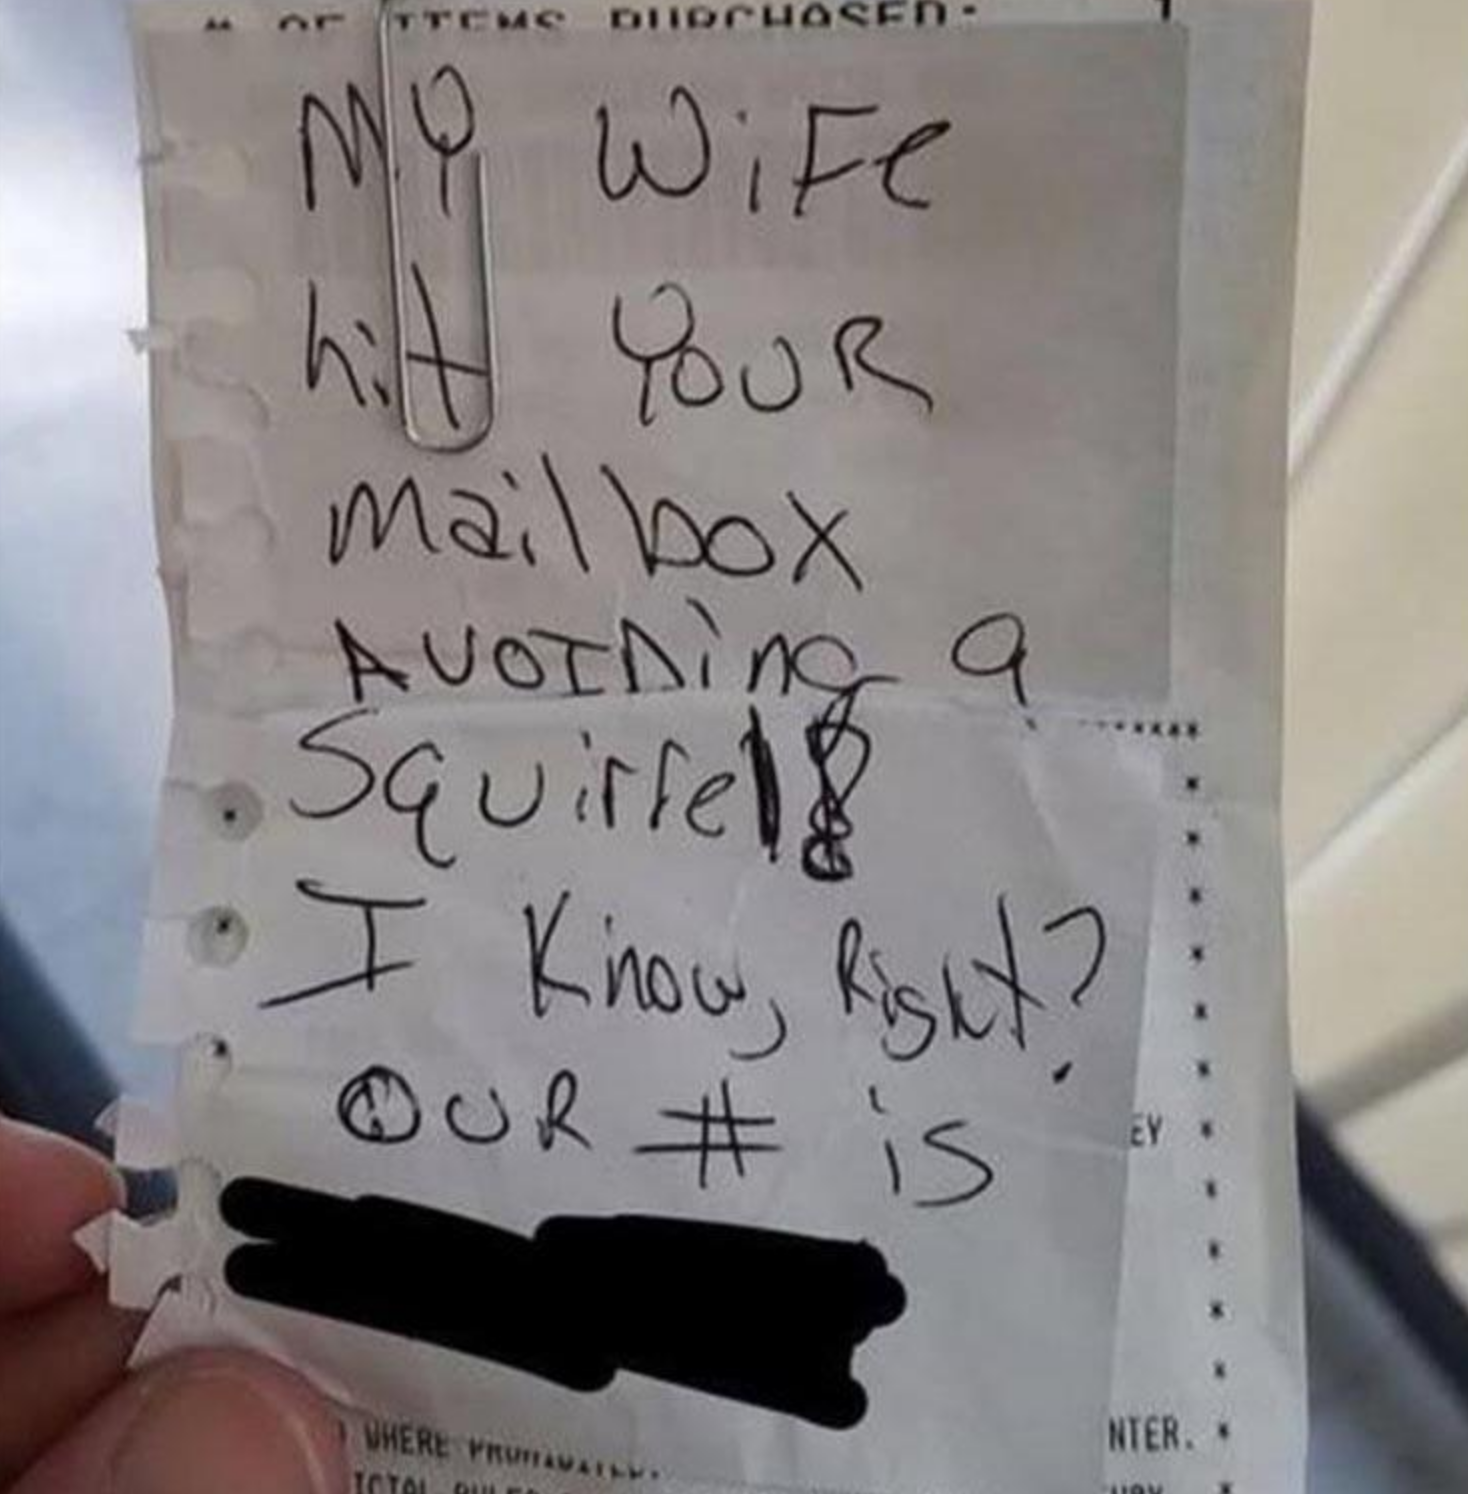 # OF ITEMS PURCHASED: 1
MY WiFe
hit YOUR
Mailbox
AVOIDing a
Squirrel
I Know, Right?
OUR # is
EY
WHERE
NTER.